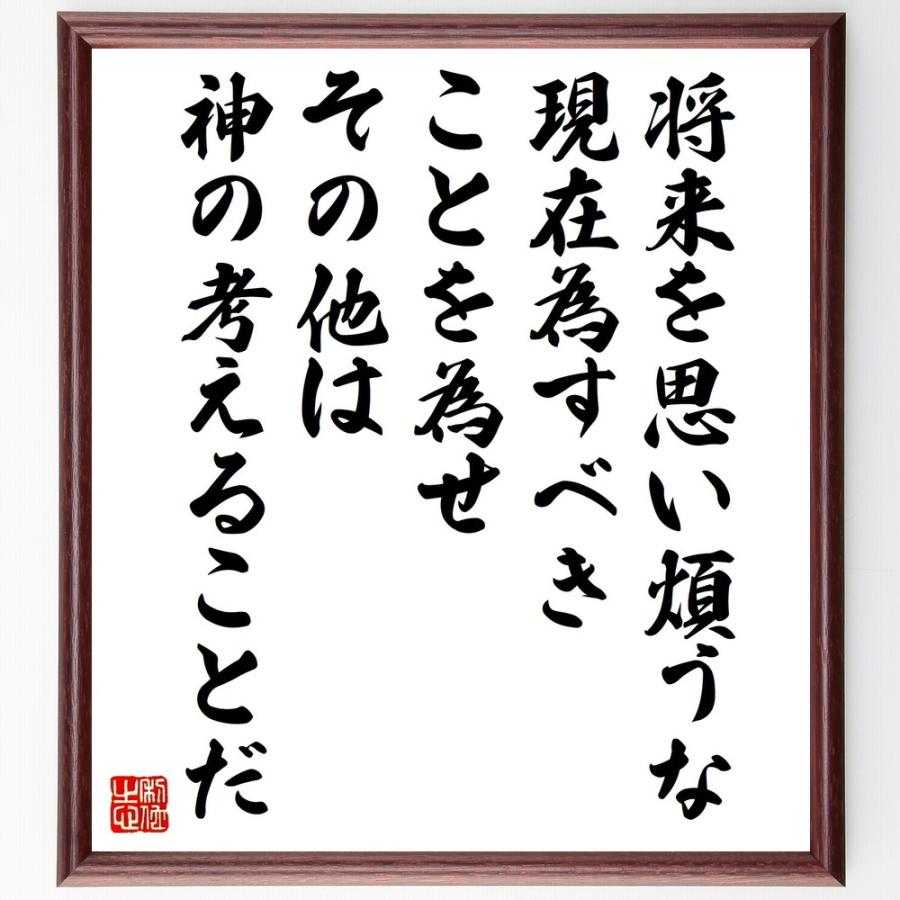 将来を思い煩うな
現在為すべき
ことを為せ
その他は
神の考えることだ